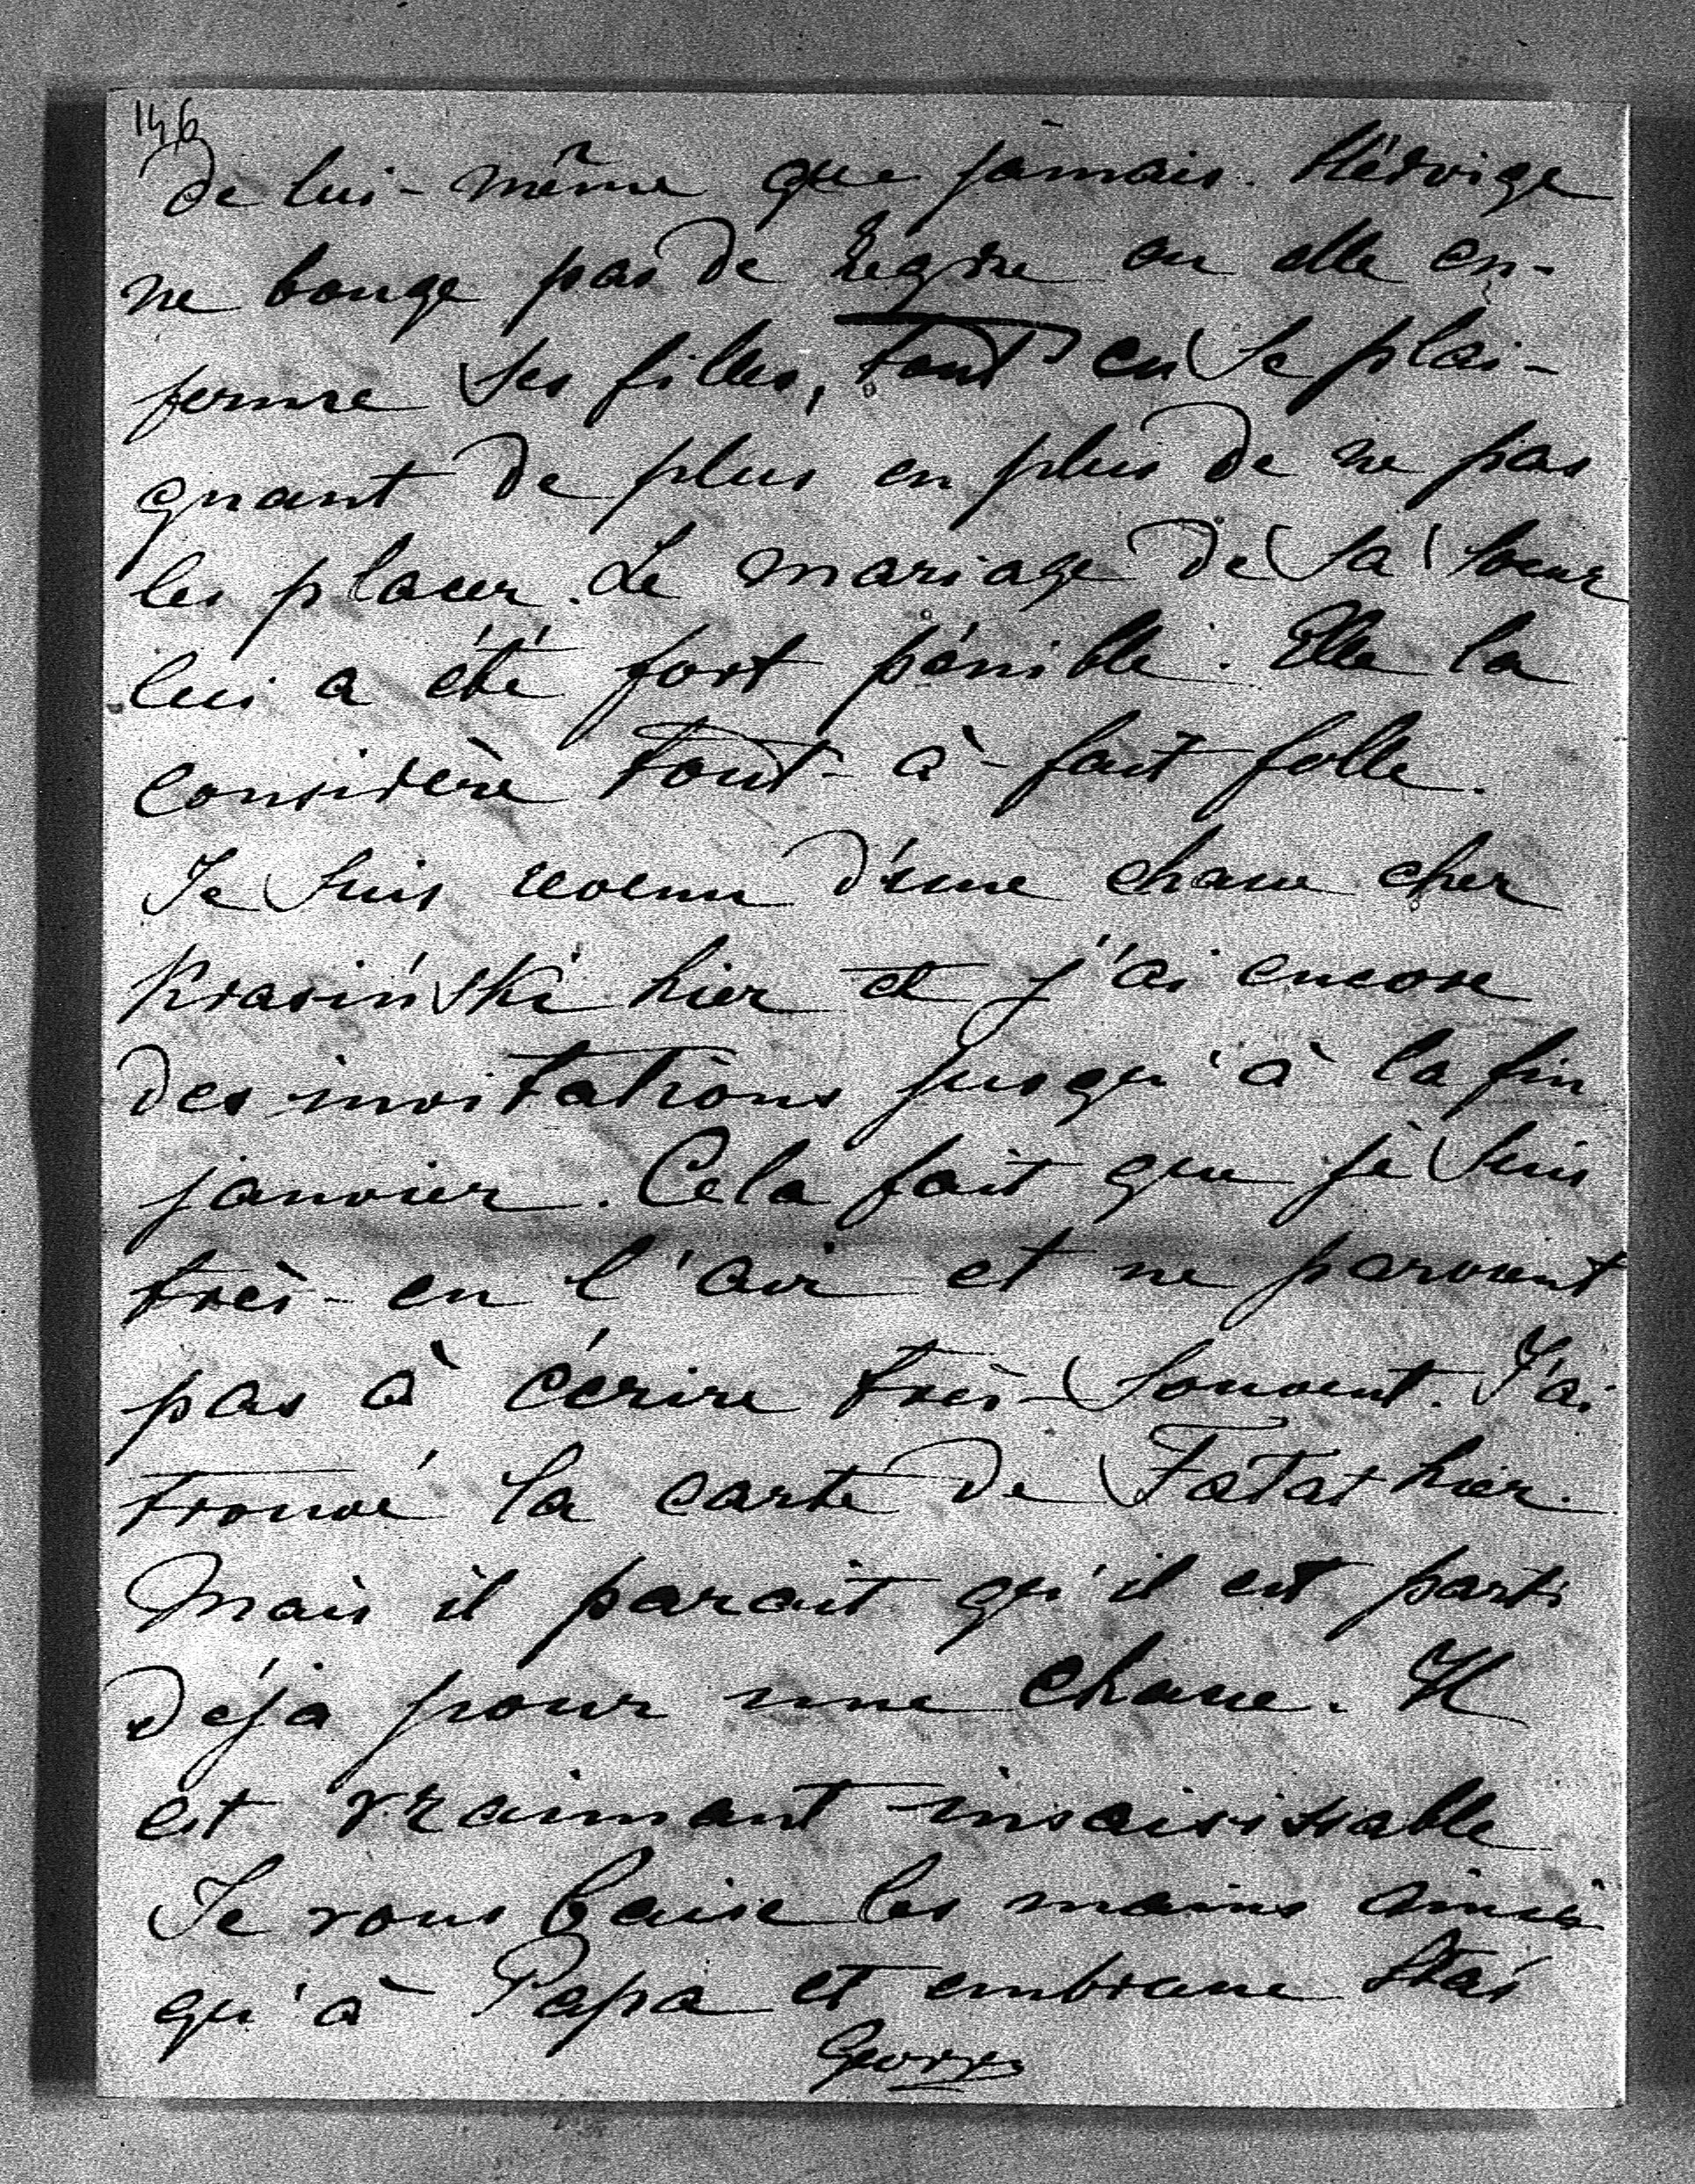 146
de lui-même que jamais. Hédvige
ne bouge pas de Regre ou elle en-
ferme ses filles, tout en se plai-
gnant de plus en plus de ne pas
les placer. Le mariage de sa soeur
lui a été fort pénible. Elle la
considère tout-à-fait folle.
Je suis revenu d'une chasse chez
Krasiński hier et j'ai encore
des invitations jusqu'à la fin
janvier. Cela fait que je suis
très-en l'air et ne parvient
pas à écrire très-souvent. J'ai
trouvé la carte de Fatat hier.
Mais il parait qu'il est parti
déja pour une chasse. Il
est vraimant insaisissable
Je vous baise les mains ainsi
qu'à Papa et embrasse Staś
Georges